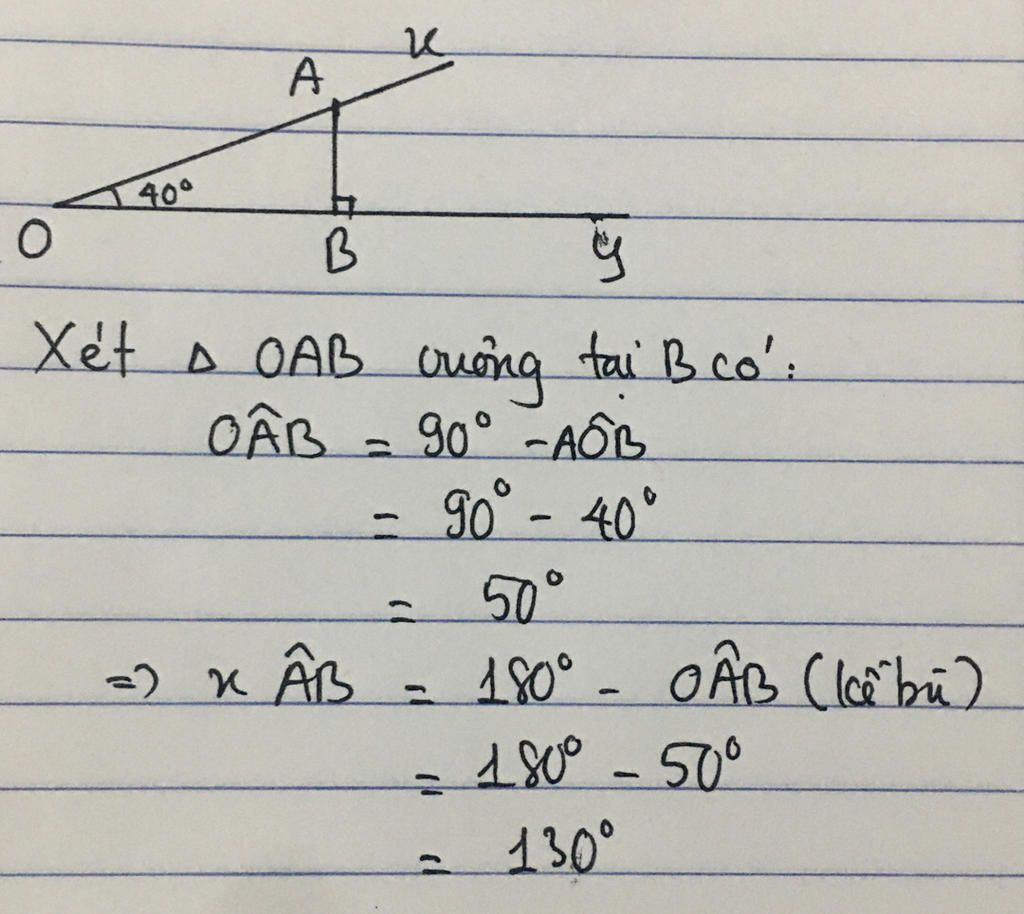 x
A
40°
O
B
y
Xét Δ OAB vuông tại B có:
OÂB = 90° - AÔB
= 90° - 40°
= 50°
=> x ÂB = 180° - OÂB (kề bù)
= 180° - 50°
= 130°